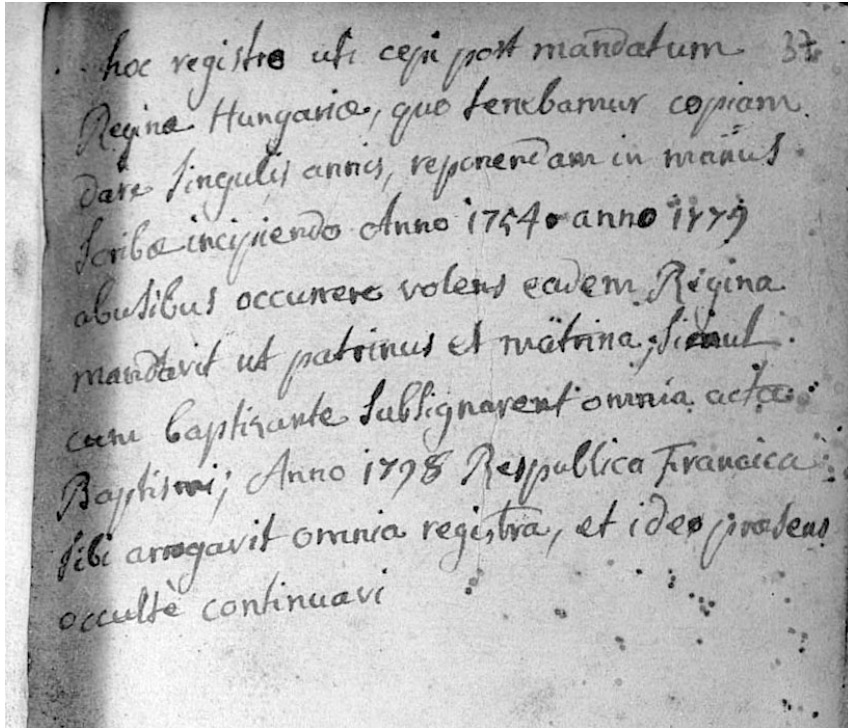 hoc registro uti cepi post mandatum 37
Reginæ Hungariæ, quo tenebamur copiam
dare singulis annis, reponendam in manus
scribæ incipiendo Anno 1754. anno 1779
abusibus occurrere volens eadem Regina
mandavit ut patrinus et matrina, simul
cum baptizante subsignarent omnia acta
Baptismi; Anno 1798 Respublica Francica
sibi arrogavit omnia registra, et ideo præsens
occultè continuavi